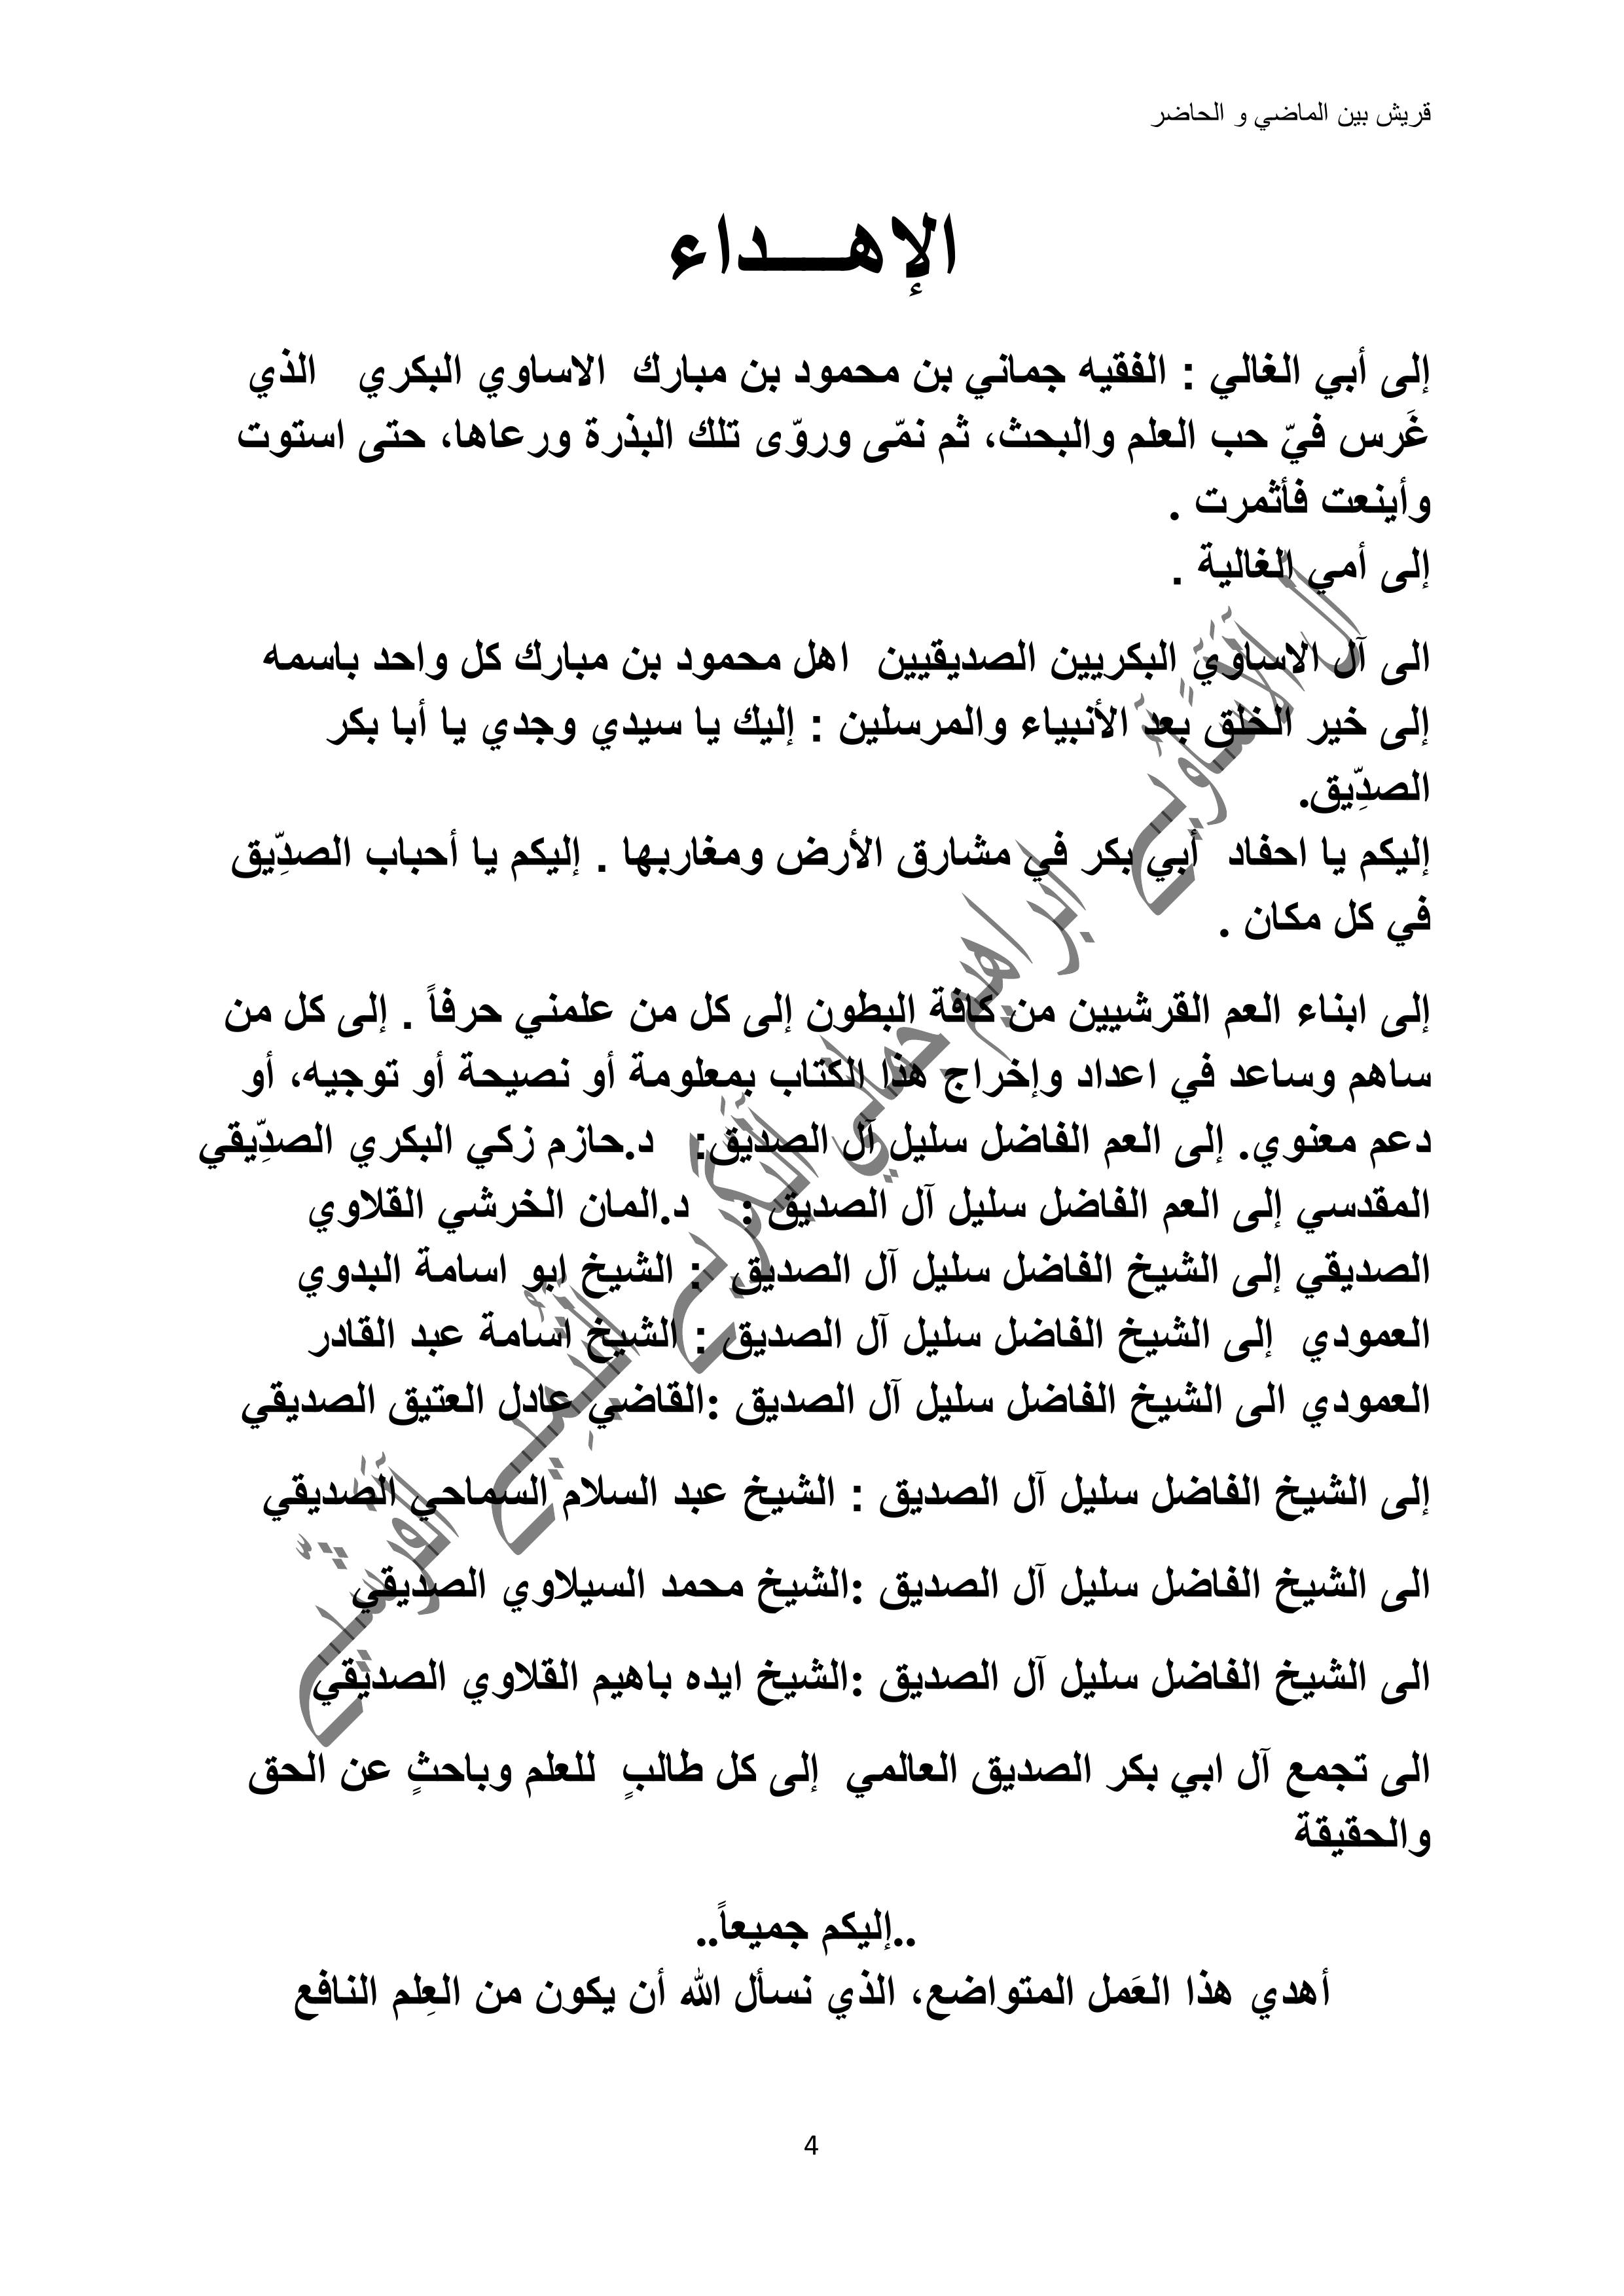 قريش بين الماضي و الحاضر
الإهـــداء
إلى أبي الغالي : الفقيه جماني بن محمود بن مبارك الاساوي البكري الذي
غَرس فيّ حب العلم والبحث، ثم نمّى وروّى تلك البذرة ورعاها، حتى استوت
وأينعت فأثمرت .
إلى أمي الغالية .
الى آل الاساوي البكريين الصديقيين اهل محمود بن مبارك كل واحد باسمه
إلى خير الخلق بعد الأنبياء والمرسلين : إليك يا سيدي وجدي يا أبا بكر
الصدِّيق.
إليكم يا احفاد أبي بكر في مشارق الأرض ومغاربها . إليكم يا أحباب الصدِّيق
في كل مكان .
إلى ابناء العم القرشيين من كافة البطون إلى كل من علمني حرفاً . إلى كل من
ساهم وساعد في اعداد وإخراج هذا الكتاب بمعلومة أو نصيحة أو توجيه، أو
دعم معنوي. إلى العم الفاضل سليل آل الصديق: د.حازم زكي البكري الصدِّيقي
المقدسي إلى العم الفاضل سليل آل الصديق : د.المان الخرشي القلاوي
الصديقي إلى الشيخ الفاضل سليل آل الصديق : الشيخ ابو اسامة البدوي
العمودي إلى الشيخ الفاضل سليل آل الصديق : الشيخ اسامة عبد القادر
العمودي الى الشيخ الفاضل سليل آل الصديق :القاضي عادل العتيق الصديقي
إلى الشيخ الفاضل سليل آل الصديق : الشيخ عبد السلام السماحي الصديقي
الى الشيخ الفاضل سليل آل الصديق :الشيخ محمد السيلاوي الصديقي
الى الشيخ الفاضل سليل آل الصديق :الشيخ ايده باهيم القلاوي الصديقي
الى تجمع آل ابي بكر الصديق العالمي إلى كل طالبٍ للعلم وباحثٍ عن الحق
والحقيقة
..إليكم جميعاً..
أهدي هذا العَمل المتواضع، الذي نسأل الله أن يكون من العِلم النافع
4